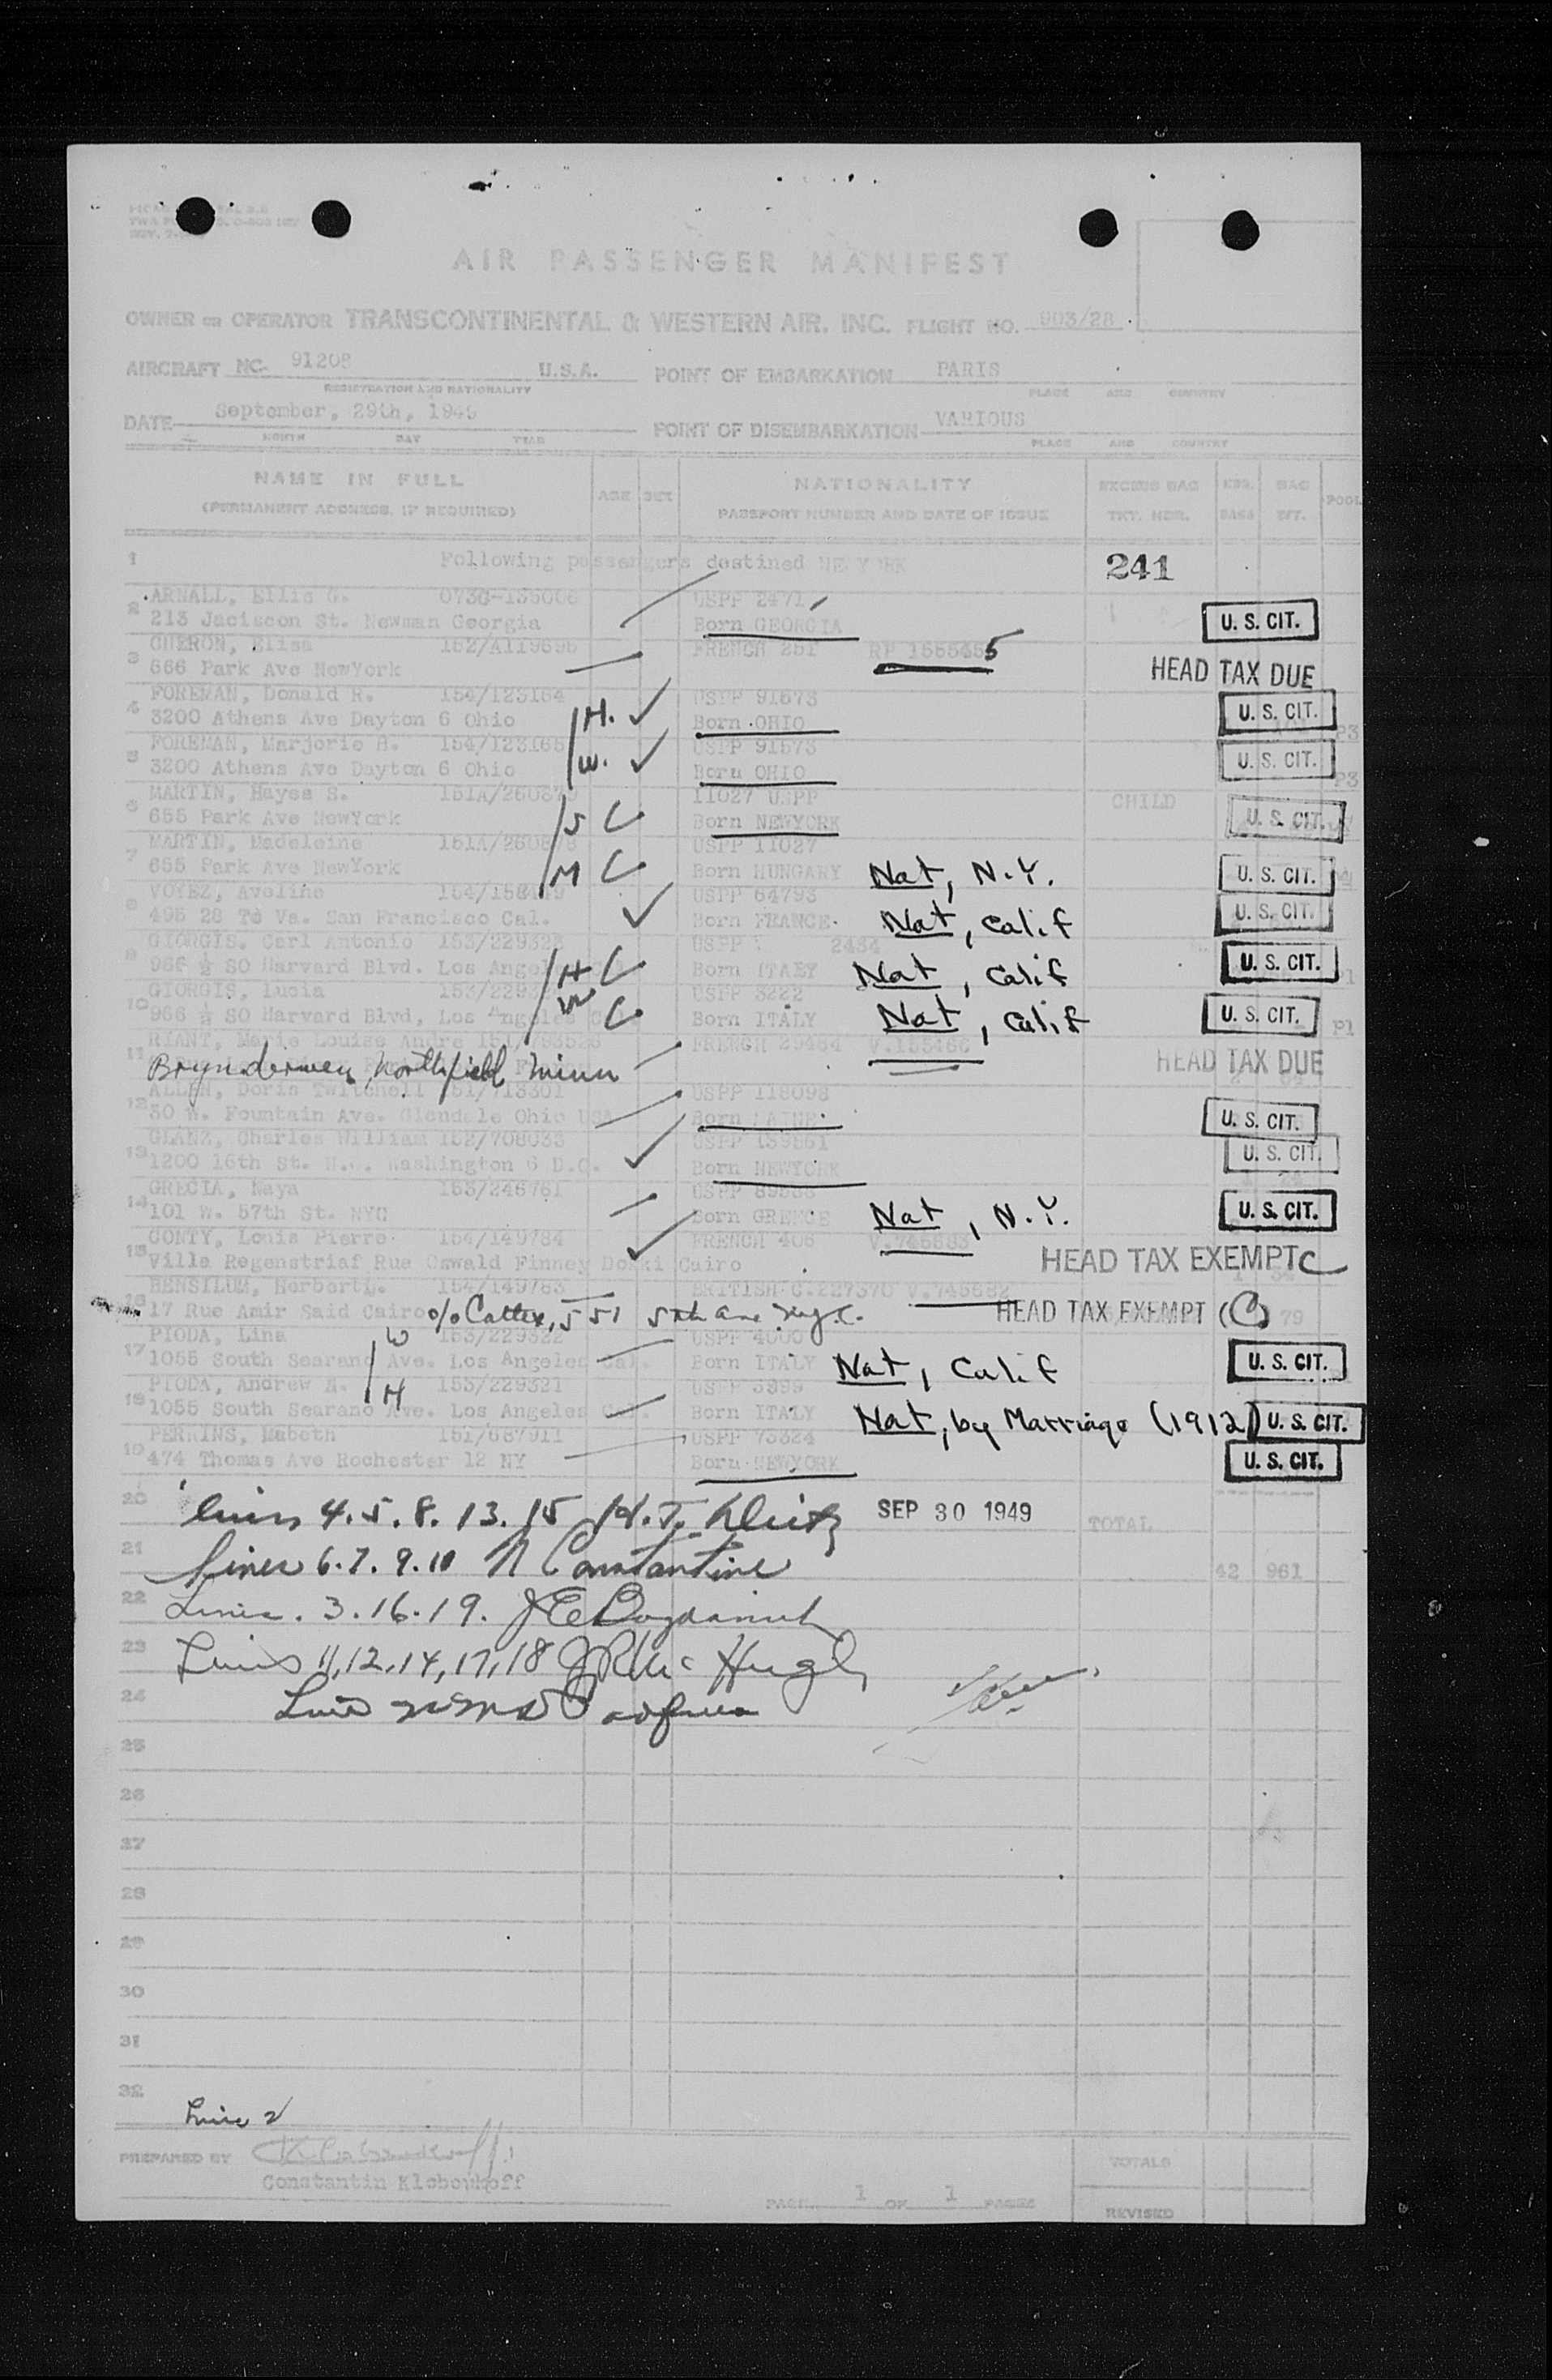 AIR PASSENGER MANIFEST
OWNER OR OPERATOR TRANSCONTINENTAL & WESTERN AIR, INC. FLIGHT NO. 903/28
AIRCRAFT NC. 91208 U.S.A. POINT OF EMBARKATION PARIS
REGISTRATION AND NATIONALITY PLACE AND COUNTRY
DATE September, 29th, 1949 POINT OF DISEMBARKATION VARIOUS
MONTH DAY YEAR PLACE AND COUNTRY
NAME IN FULL AGE SEX NATIONALITY EXCESS BAG NBR. BAG POOL
(PERMANENT ADDRESS, IF REQUIRED) PASSPORT NUMBER AND DATE OF ISSUE TKT. NBR. BAGS WT.
1 Following passengers destined NEWYORK 241
ARNALL, Ellis G. USPP 2471
2 213 Jaciscon St. Newman Georgia Born GEORGIA U. S. CIT.
CHERON, Elisa 152/A119595 FRENCH 251 RP
3 666 Park Ave NewYork HEAD TAX DUE
FOREMAN, Donald R. 154/123164 USPP 91573
4 3200 Athens Ave Dayton 6 Ohio H. Born OHIO U. S. CIT. P3
FOREMAN, Marjorie H. 154/123165 USPP 91573
5 3200 Athens Ave Dayton 6 Ohio W. Born OHIO U. S. CIT. P3
MARTIN, Hayes S. 11027 USPP CHILD
6 655 Park Ave NewYork S Born NEWYORK U. S. CIT.
MARTIN, Madeleine USPP 11027
7 655 Park Ave NewYork M Born HUNGARY Nat, N.Y. U. S. CIT.
VOYEZ, Aveline USPP 64793
8 495 28 Te Va. San Francisco Cal. Born FRANCE. Nat, Calif U. S. CIT.
GIORGIS. Carl Antonio 153/229323 USPP 2434
9 966 ½ SO Harvard Blvd. Los Angel H Born ITALY Nat, Calif U. S. CIT. P1
GIORGIS, Lucia USPP 3222
10 966 ½ SO Harvard Blvd, Los Angeles W Born ITALY Nat, Calif U. S. CIT. P1
RIANT, Marie Louise Andre FRENCH 29464 V.155466
11 Northfield Minn HEAD TAX DUE
ALLEN, Doris Twitchell USPP 118098
12 30 W. Fountain Ave. Glendale Ohio USA Born MAINE. U. S. CIT.
GLANZ, Charles William 152/708033 USPP 189861
13 1200 16th St. N.W. Washington 6 D.C. Born NEWYORK U. S. CIT.
GRECIA, Maya 153/246761
14 101 W. 57th St. NYC Born GREECE Nat, N.Y. U. S. CIT.
CONTY, Louis Pierre 154/149784 FRENCH 406 V.745683
15 Ville Regenstriaf Rue Oswald Finney Dokki Cairo HEAD TAX EXEMPT C
BENSILUM, Herbert 154/149783 BRITISH C.227370 V.745682
16 17 Rue Amir Said Cairo c/o Caltex, 551 5th ave N.Y.C. HEAD TAX EXEMPT (C) 79
PIODA, Lina 153/229322 USPP 4000
17 1055 South Searano Ave. Los Angeles Cal. W Born ITALY Nat, Calif U. S. CIT.
PIODA, Andrew 153/229321
18 1055 South Searano Ave. Los Angeles Cal. H Born ITALY Nat, by Marriage (1912) U. S. CIT.
PERKINS, Mabeth 151/687911 USPP 73324
19 474 Thomas Ave Rochester 12 NY Born NEWYORK U. S. CIT.
20 Lines 4.5.8.13.15 SEP 30 1949 TOTAL
21 Lines 6.7.9.10 N Constantine 42 961
22 Lines. 3.16.19.
23 Lines 11,12,14,17,18 J R Mc Hugh
24
25
26
27
28
29
30
31
32
Line 2
PREPARED BY
Constantin Kloboukoff
PAGE 1 OF 1 PAGES
TOTALS
REVISED